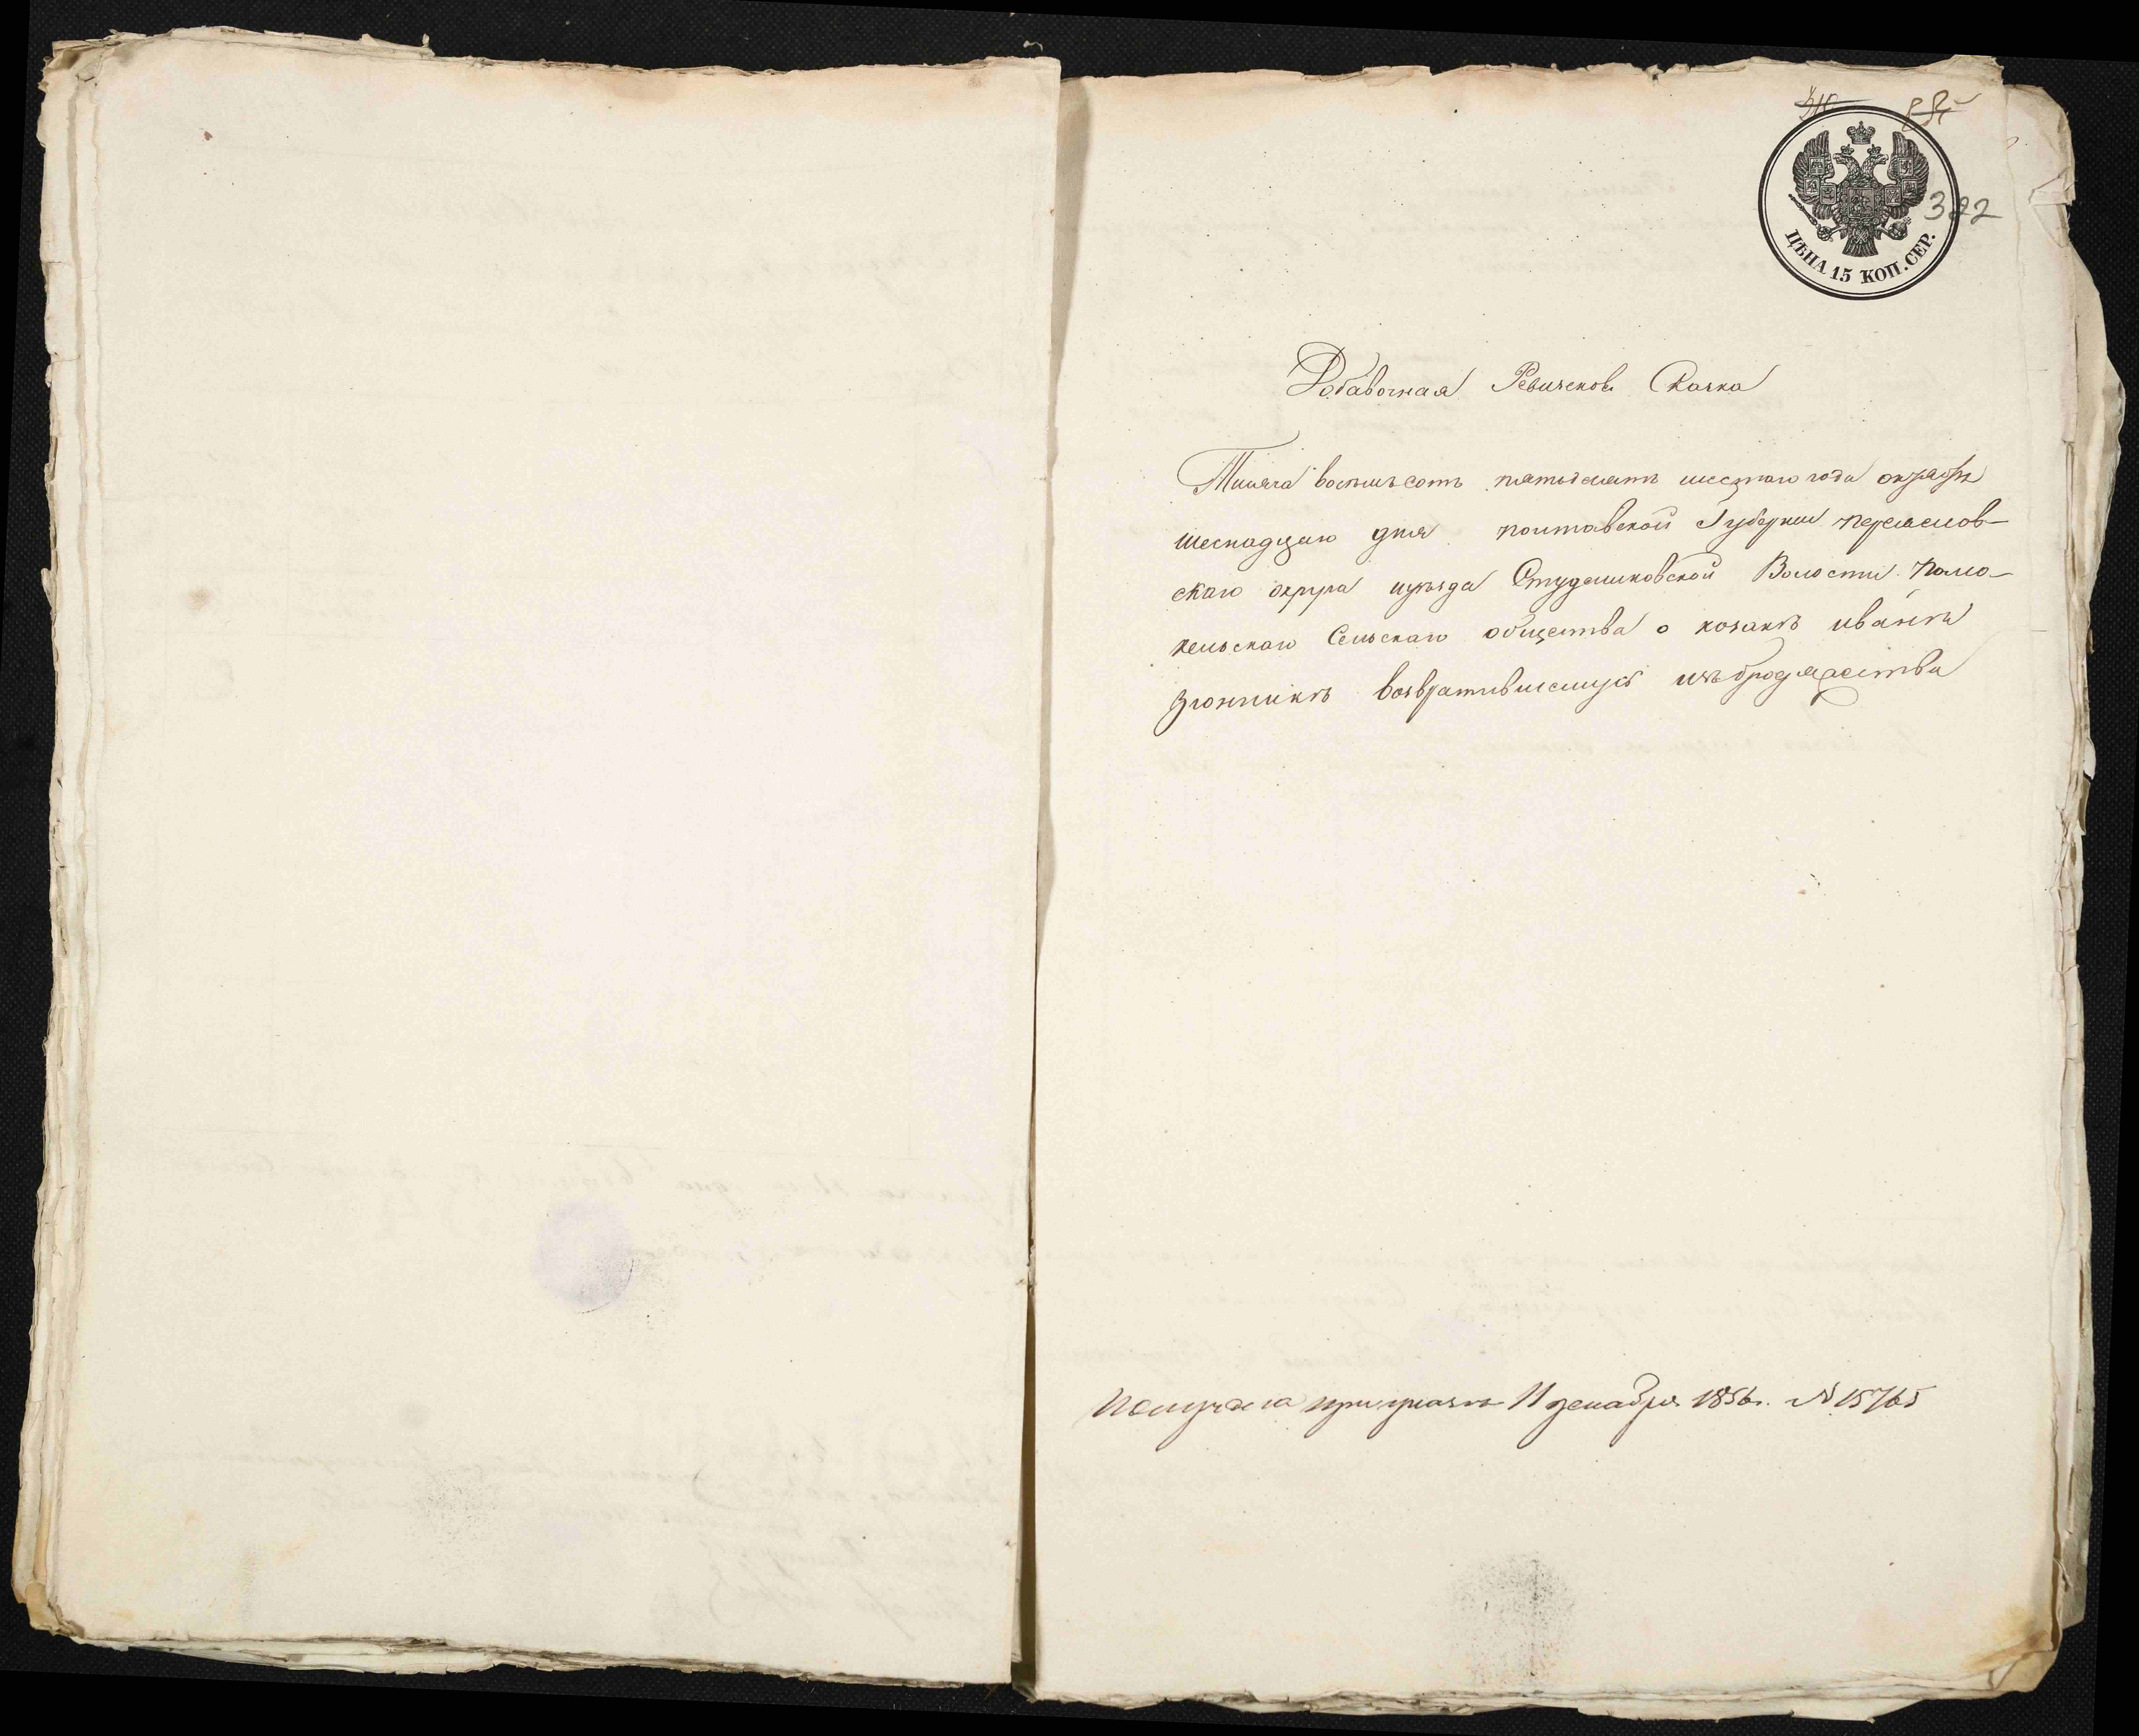 322
ЦѢНА 15 КОП. СЕР.
Добавочная Ревизская Сказка
Тысяча восемьсотъ пятьдесятъ шестаго года октября
шеснадцаго дня полтавской Губернии переяслов-
скаго округа иуѣзда Студениковской Волости Помо-
кельскаго Сельскаго общества о козакѣ иванѣ
возвратившемуся изъ бродяжества
Получена при указѣ 11 декабря 1856г. № 15765